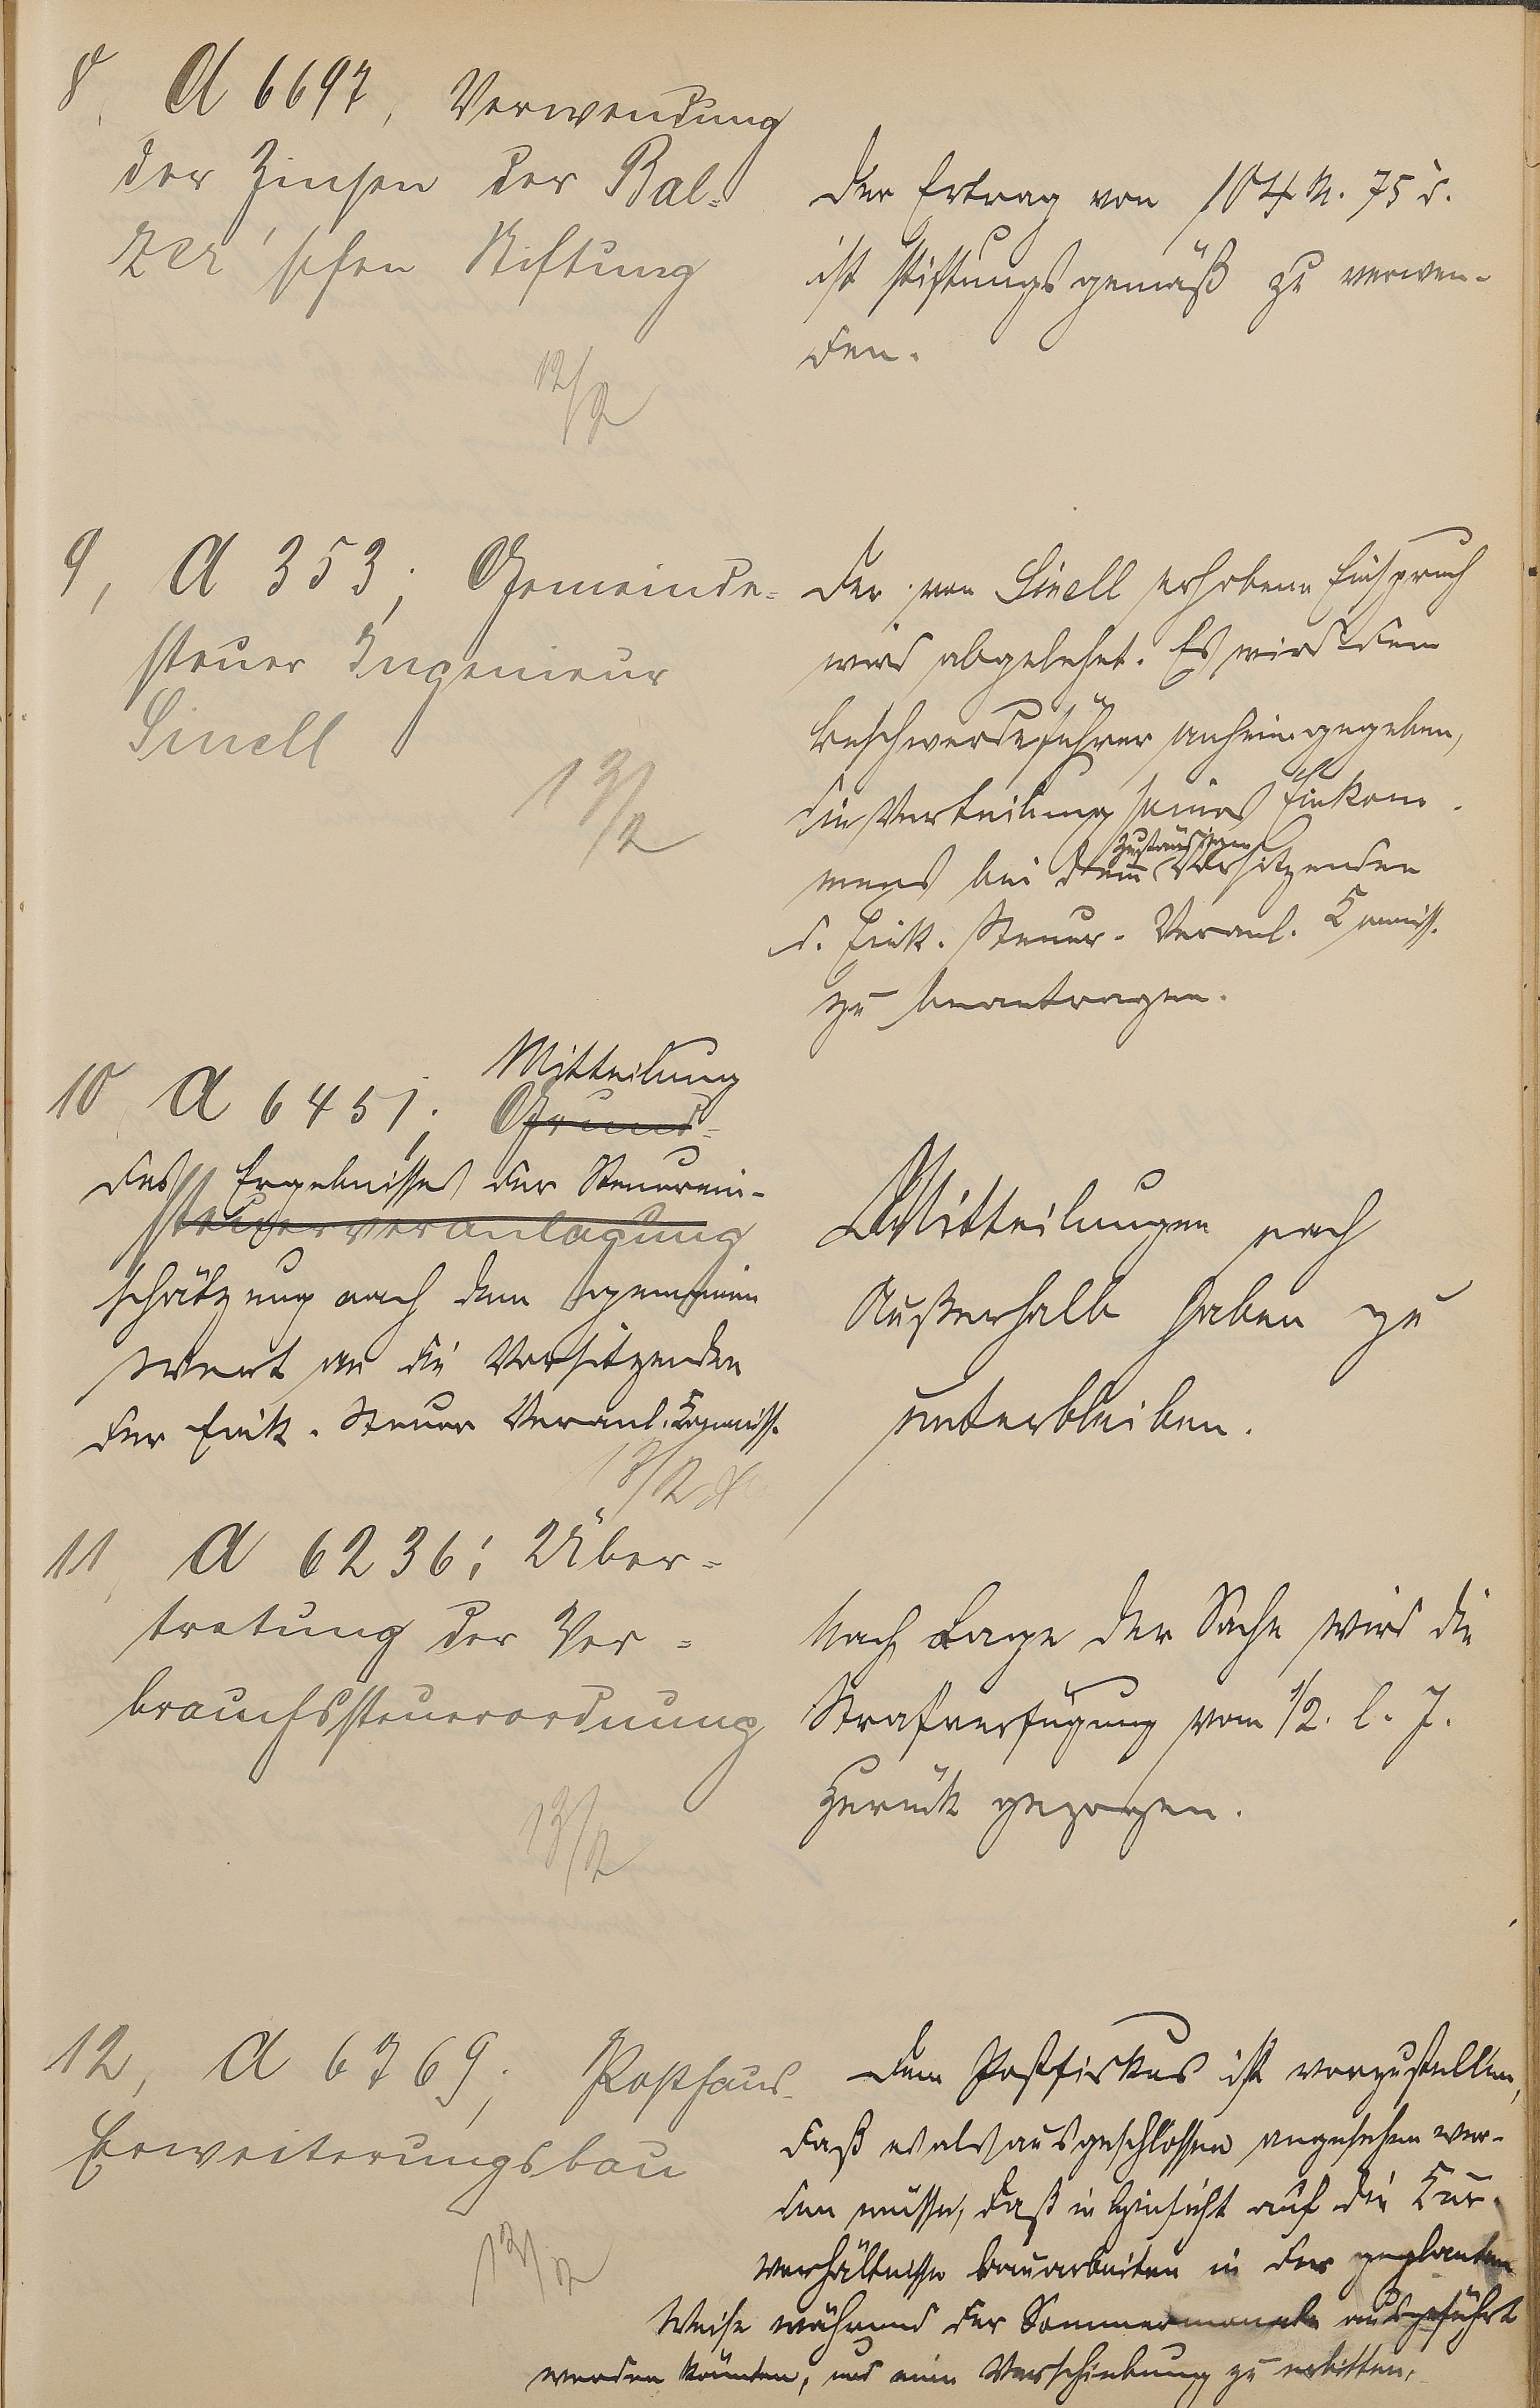 8, A 6697, Verwendung
der Zinsen der Bal-
zer'schen Stiftung
12/2
Der Ertrag von 104 M. 75 d.
ist stiftungsgemäß zu verwen-
den.
9, A 353; Gemeinde-
steuer Ingenieur
Sinell
13/2
Der von Sinell erhobene Einspruch
wird abgelehnt. Es wird dem
Beschwerdeführer anheimgegeben,
die Verteilung seines Einkom-
zuständigen
mens bei dem Vorsitzenden
d. Eink. Steuer-Veranl. Kommiss.
zu beantragen.
10, A 6451; Mitteilung
Grund-
des Ergebnisses der Steuerein-
steuerveranlagung
schätzung nach dem gemeinen
Wert an die Vorsitzenden
der Eink. Steuer Veranl. Kommiss.
13/2
Mitteilungen nach
Außerhalb haben zu
unterbleiben.
11, A 6236; Über-
tretung der Ver-
brauchssteuerordnung
13/2
Nach Lage der Sache wird die
Strafverfügung vom 1/2. l. J.
zurück gezogen.
12, A 6769; Posthaus-
Erweiterungsbau
13/2
Dem Postfiskus ist vorzustellen,
daß es als ausgeschlossen angesehen wer-
den müsse, daß in Hinsicht auf die Kur-
verhältnisse Bauarbeiten in der geplanten
Weise während der Sommermonate ausgeführt
werden könnten, und eine Verschiebung zu erbitten,